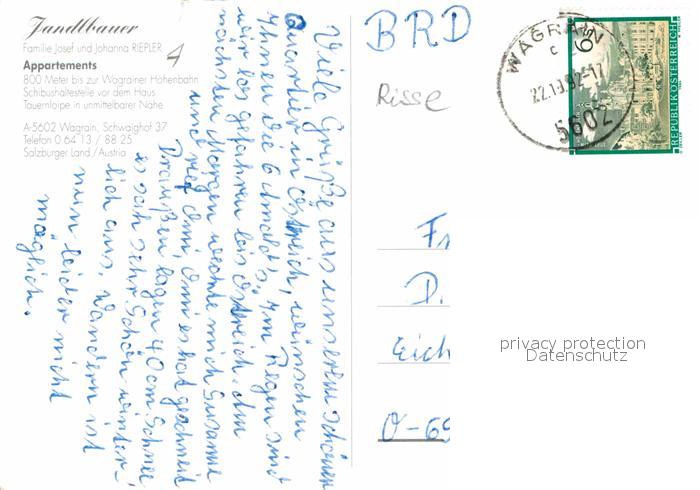 Jandlbauer
Familie Josef und Johanna RIEPLER
4
Appartements
800 Meter bis zur Wagrainer Höhenbahn
Schibushaltestelle vor dem Haus
Tauernloipe in unmittelbarer Nähe
A-5602 Wagrain, Schwaighof 37
Telefon 0 64 13 / 88 25
Salzburger Land /Austria
Viele Grüße aus unserem schönen
Quartier in Östreich, wünschen
Ihnen die 6 Im Regen sind
wir los gefahren bis Östreich. Am
nächsten Morgen weckte mich Susanne
und rief Omi, Omi es hat geschneit
Draußen lagen 40 cm Schnee
es sah sehr Schön winter-
lich aus. Wandern ist
nun leider nicht
möglich.
BRD
Risse
WAGRAIN
c
22.10.92-17
5602
6
REPUBLIK ÖSTERREICH
Fr
D.
Eich
O-69
privacy protection
Datenschutz